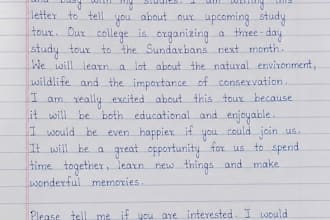 and busy with my studies. I am writing this
letter to tell you about our upcoming study
tour. Our college is organizing a three-day
study tour to the Sundarbans next month.
We will learn a lot about the natural environment,
wildlife and the importance of conservation.
I am really excited about this tour because
it will be both educational and enjoyable.
I would be even happier if you could join us.
It will be a great opportunity for us to spend
time together, learn new things and make
wonderful memories.
Please tell me if you are interested. I would